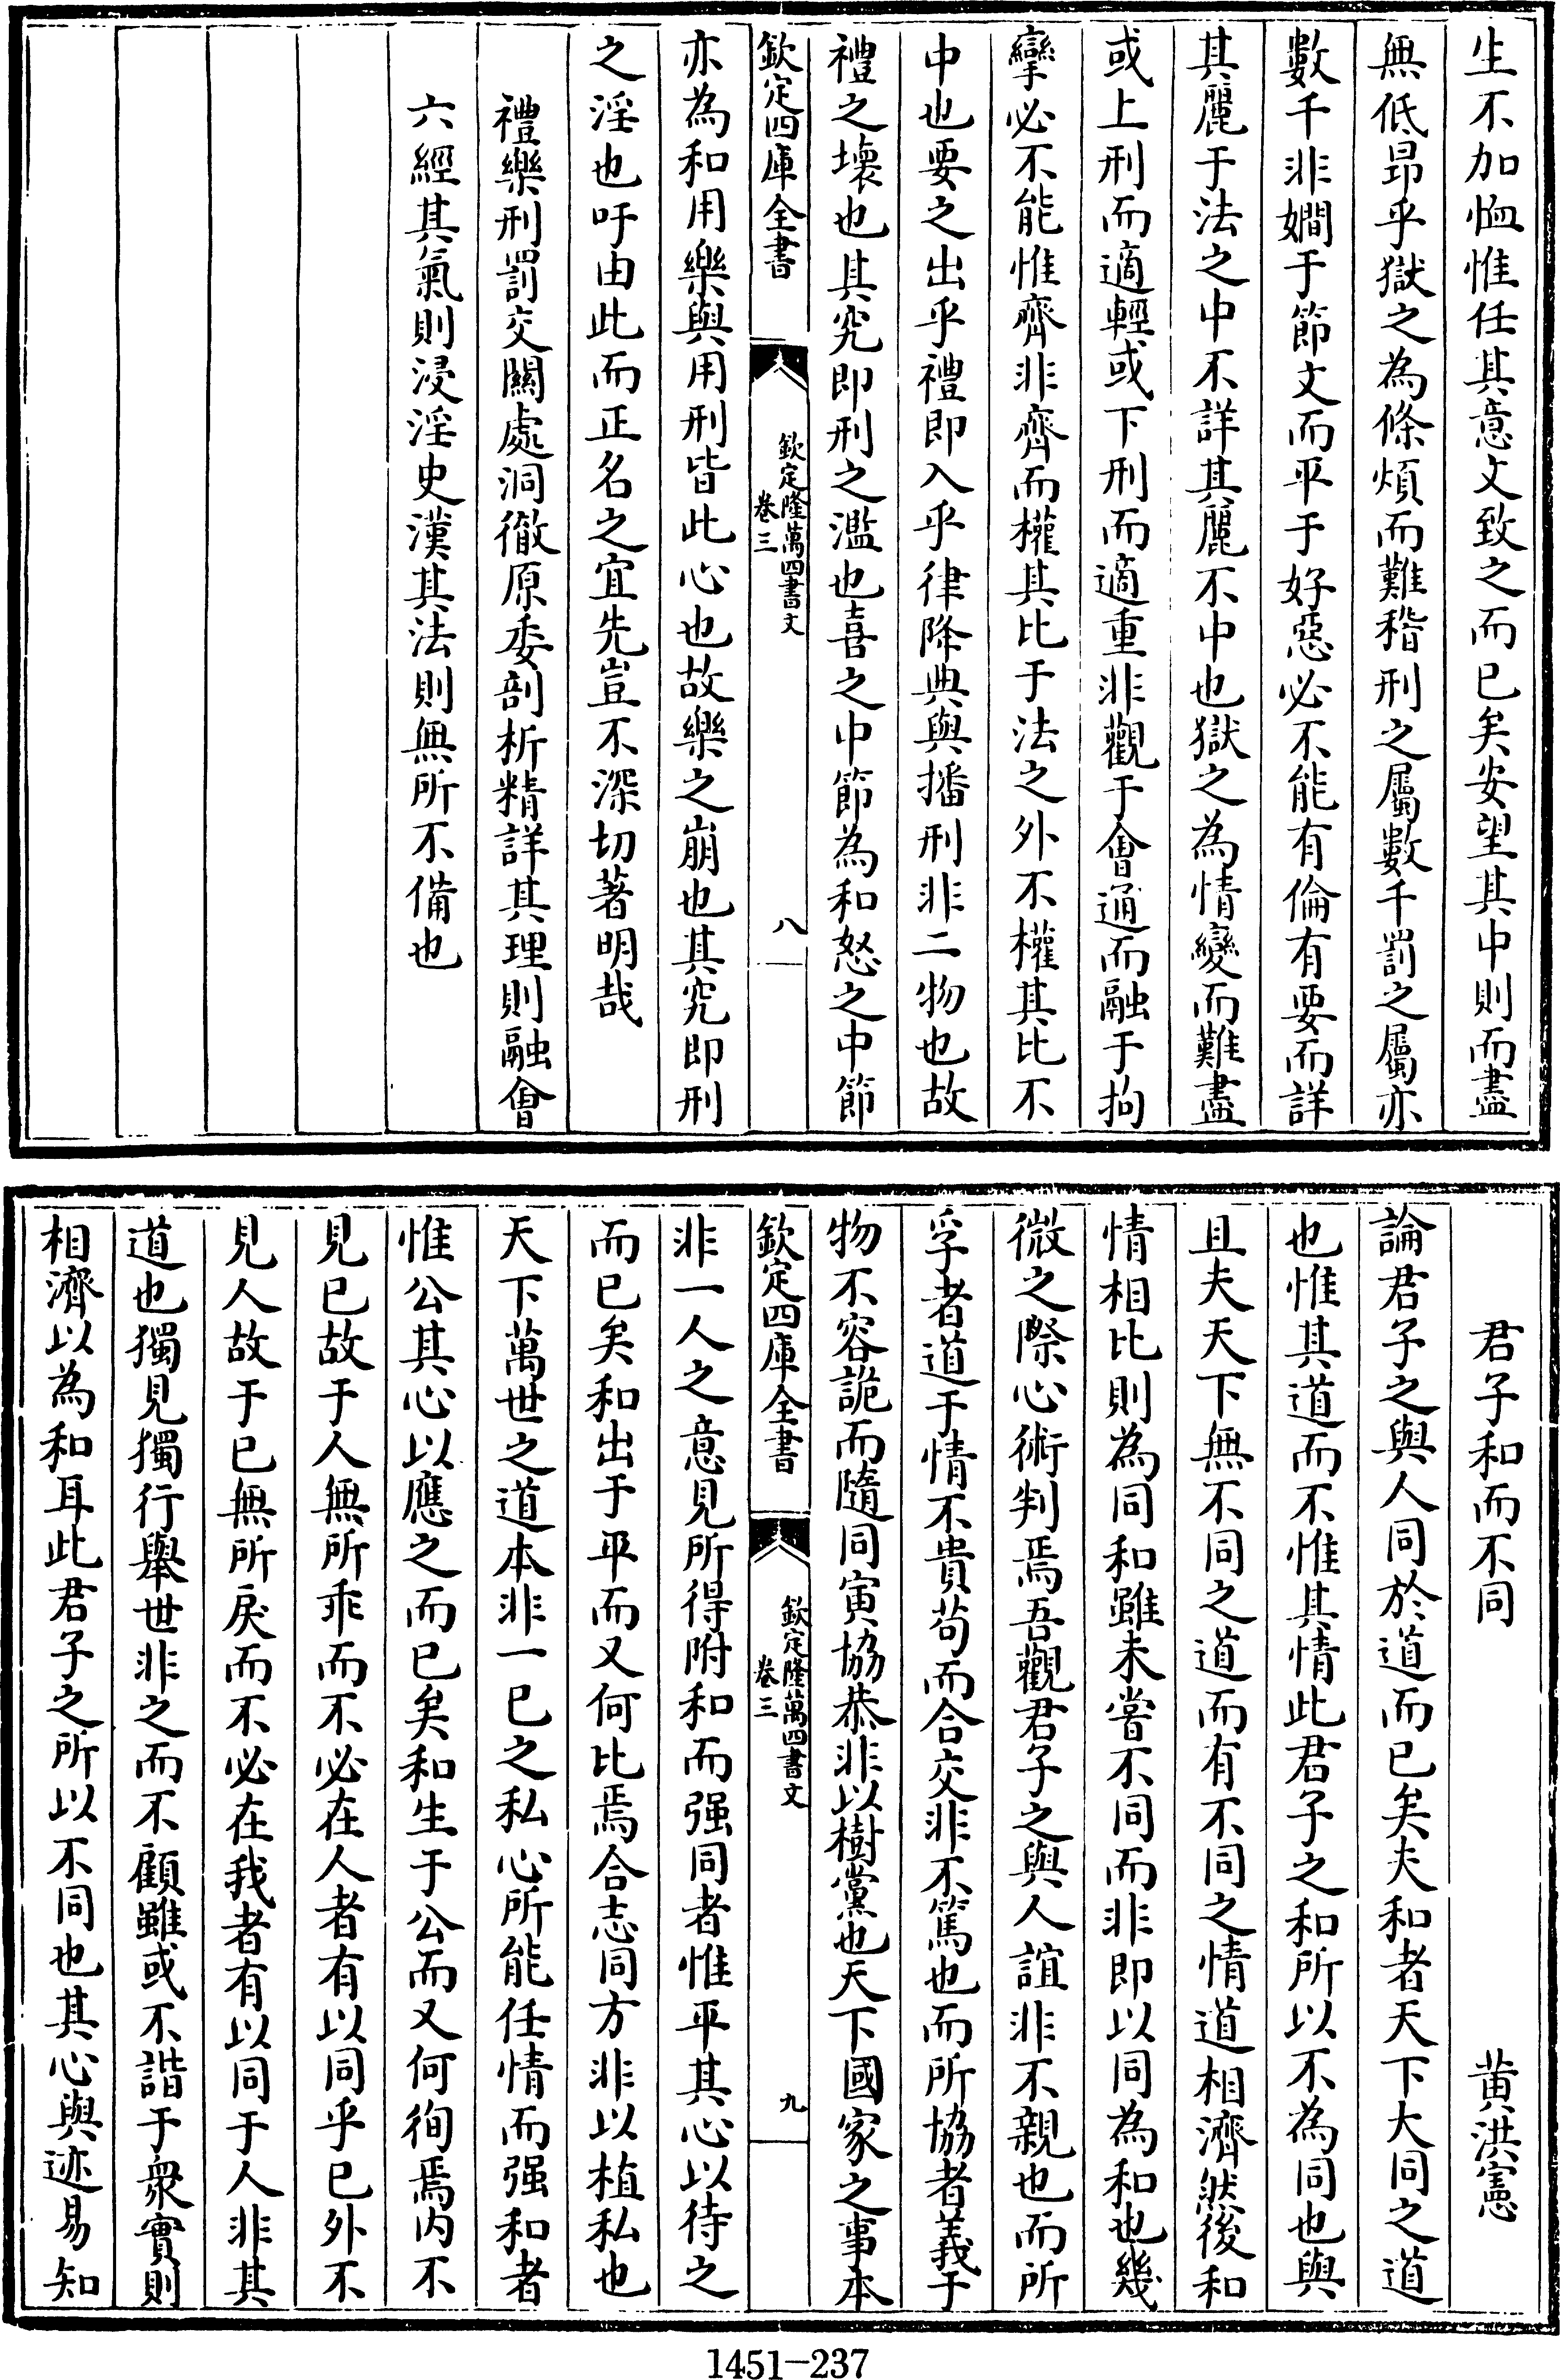 生不加恤惟任其意文致之而已矣安望其中則而盡
無低昂乎獄之為條煩而難稽刑之屬數千罰之屬亦
數千非嫺于節文而平于好惡必不能有倫有要而詳
其麗于法之中不詳其麗不中也獄之為情變而難盡
或上刑而適輕或下刑而適重非觀于會通而融于拘
攣必不能惟齊非齊而權其比于法之外不權其比不
中也要之出乎禮即入乎律降典與播刑非二物也故
禮之壞也其究即刑之濫也喜之中節為和怒之中節
欽定四庫全書
欽定隆萬四書文
卷三
八
亦為和用樂與用刑皆此心也故樂之崩也其究即刑
之淫也吁由此而正名之宜先豈不深切著明哉
禮樂刑罰交關處洞徹原委剖析精詳其理則融會
六經其氣則浸淫史漢其法則無所不備也
君子和而不同
黄洪憲
論君子之與人同於道而已矣夫和者天下大同之道
也惟其道而不惟其情此君子之和所以不為同也與
且夫天下無不同之道而有不同之情道相濟然後和
情相比則為同和雖未嘗不同而非即以同為和也幾
微之際心術判焉吾觀君子之與人誼非不親也而所
孚者道于情不貴苟而合交非不篤也而所協者義于
物不容詭而隨同寅協恭非以樹黨也天下國家之事本
欽定四庫全書
欽定隆萬四書文
卷三
九
非一人之意見所得附和而强同者惟平其心以待之
而已矣和出于平而又何比焉合志同方非以植私也
天下萬世之道本非一已之私心所能任情而强和者
惟公其心以應之而已矣和生于公而又何徇焉内不
見已故于人無所乖而不必在人者有以同乎已外不
見人故于已無所戾而不必在我者有以同于人非其
道也獨見獨行舉世非之而不顧雖或不諧于衆實則
相濟以為和耳此君子之所以不同也其心與迹易知
1451-237